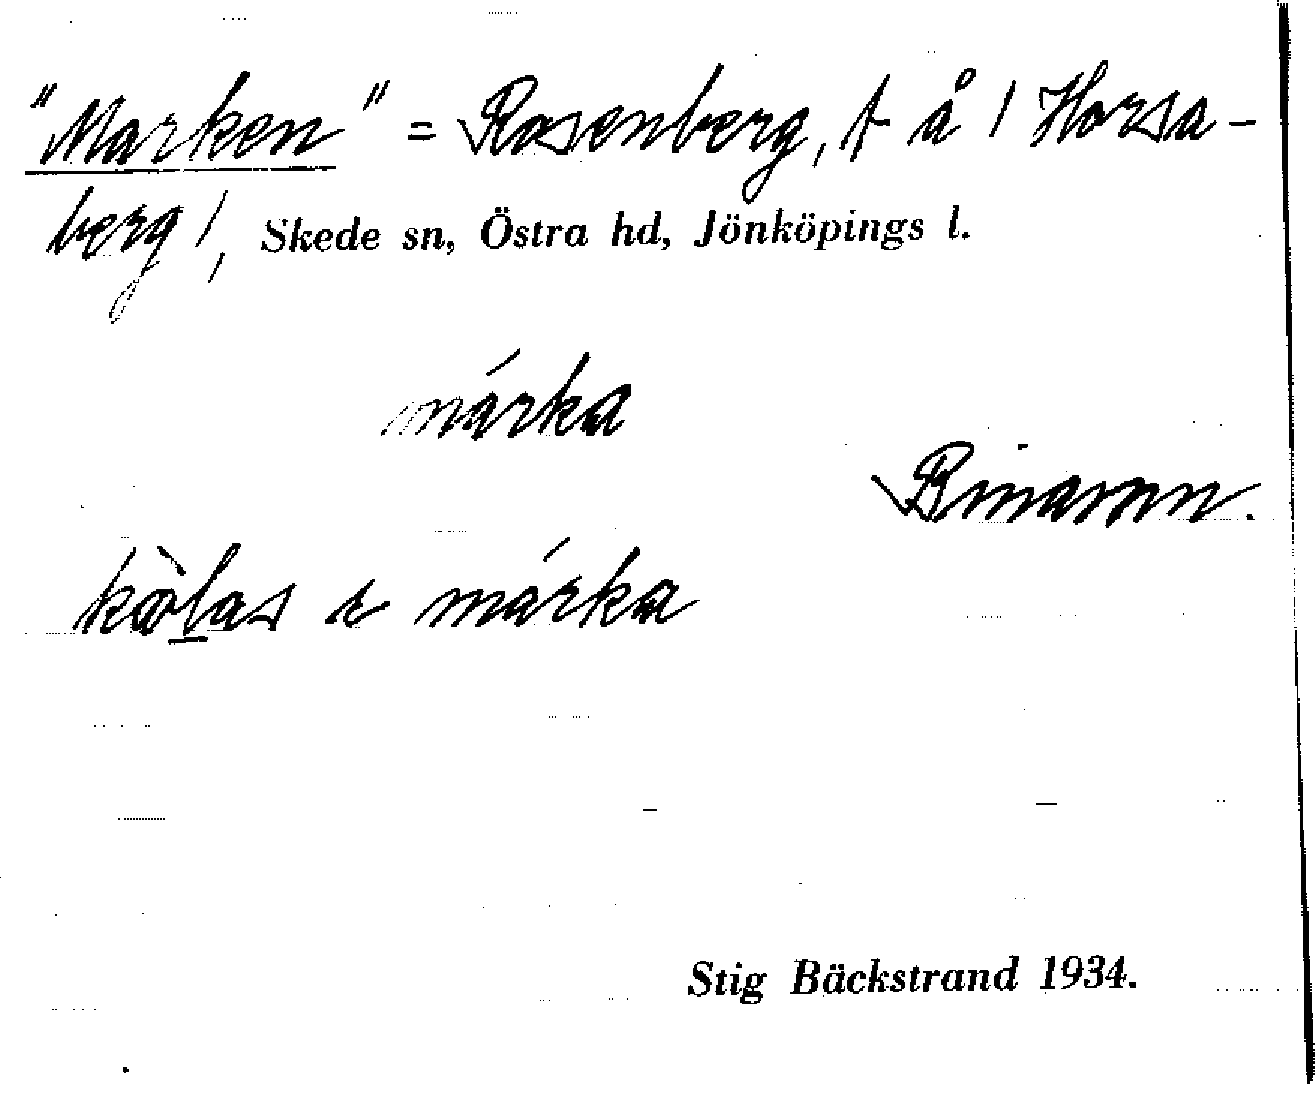 "Marken" = Rosenberg, t å / Horsa-
berg /, Skede sn, Östra hd, Jönköpings l.
márka
Binamn.
kœ̀las i márka
Stig Bäckstrand 1934.